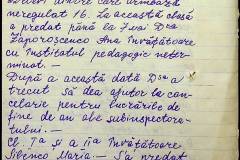 neregulat 16. La această clasă
a predat până la 7 mai D-ra
Zaporoscenco Ana învățătoare
cu Institutul pedagogic neter-
minat.—
După această dată D-sa a
trecut să dea ajutor la can-
celarie pentru lucrările de
fine de an ale subinspectora-
tului.—
Cl. I-a și a II-a învățătoare
Sibenco Maria — Să predat